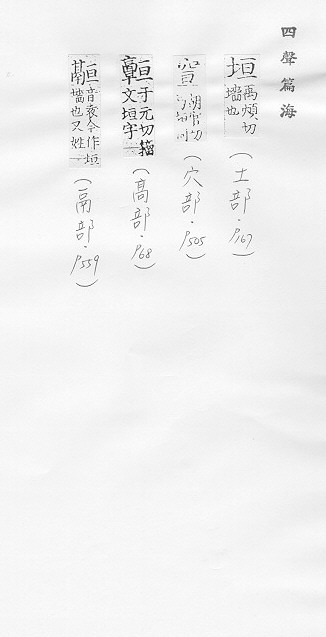 四聲篇海
垣禹煩切墻也
(土部.P167)
(穴部.P505)
于元切籀文垣字
(髙部.P68)
音袁今作垣墻也又姓
(鬲部.P559)